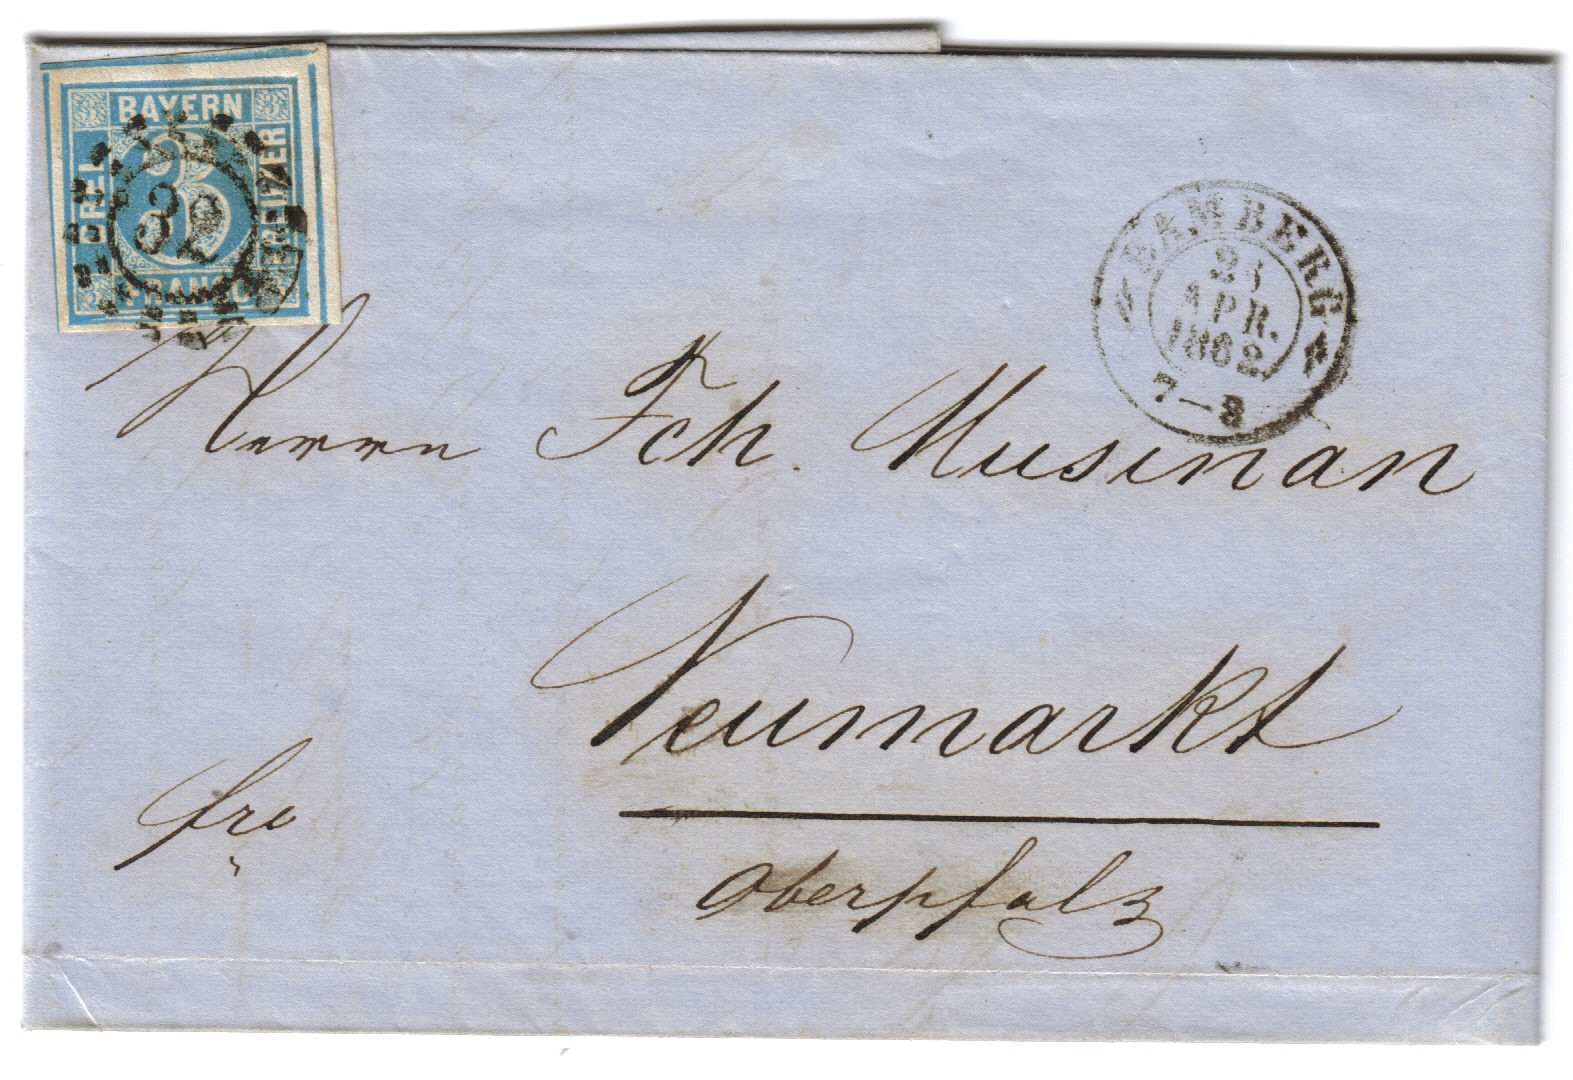 BAYERN
DREI
3
KREUZER
FRANCO
32
BAMBERG
23
APR.
1862
7-8
Herrn Fch. Musinan
Neumarkt
fro
Oberpfalz